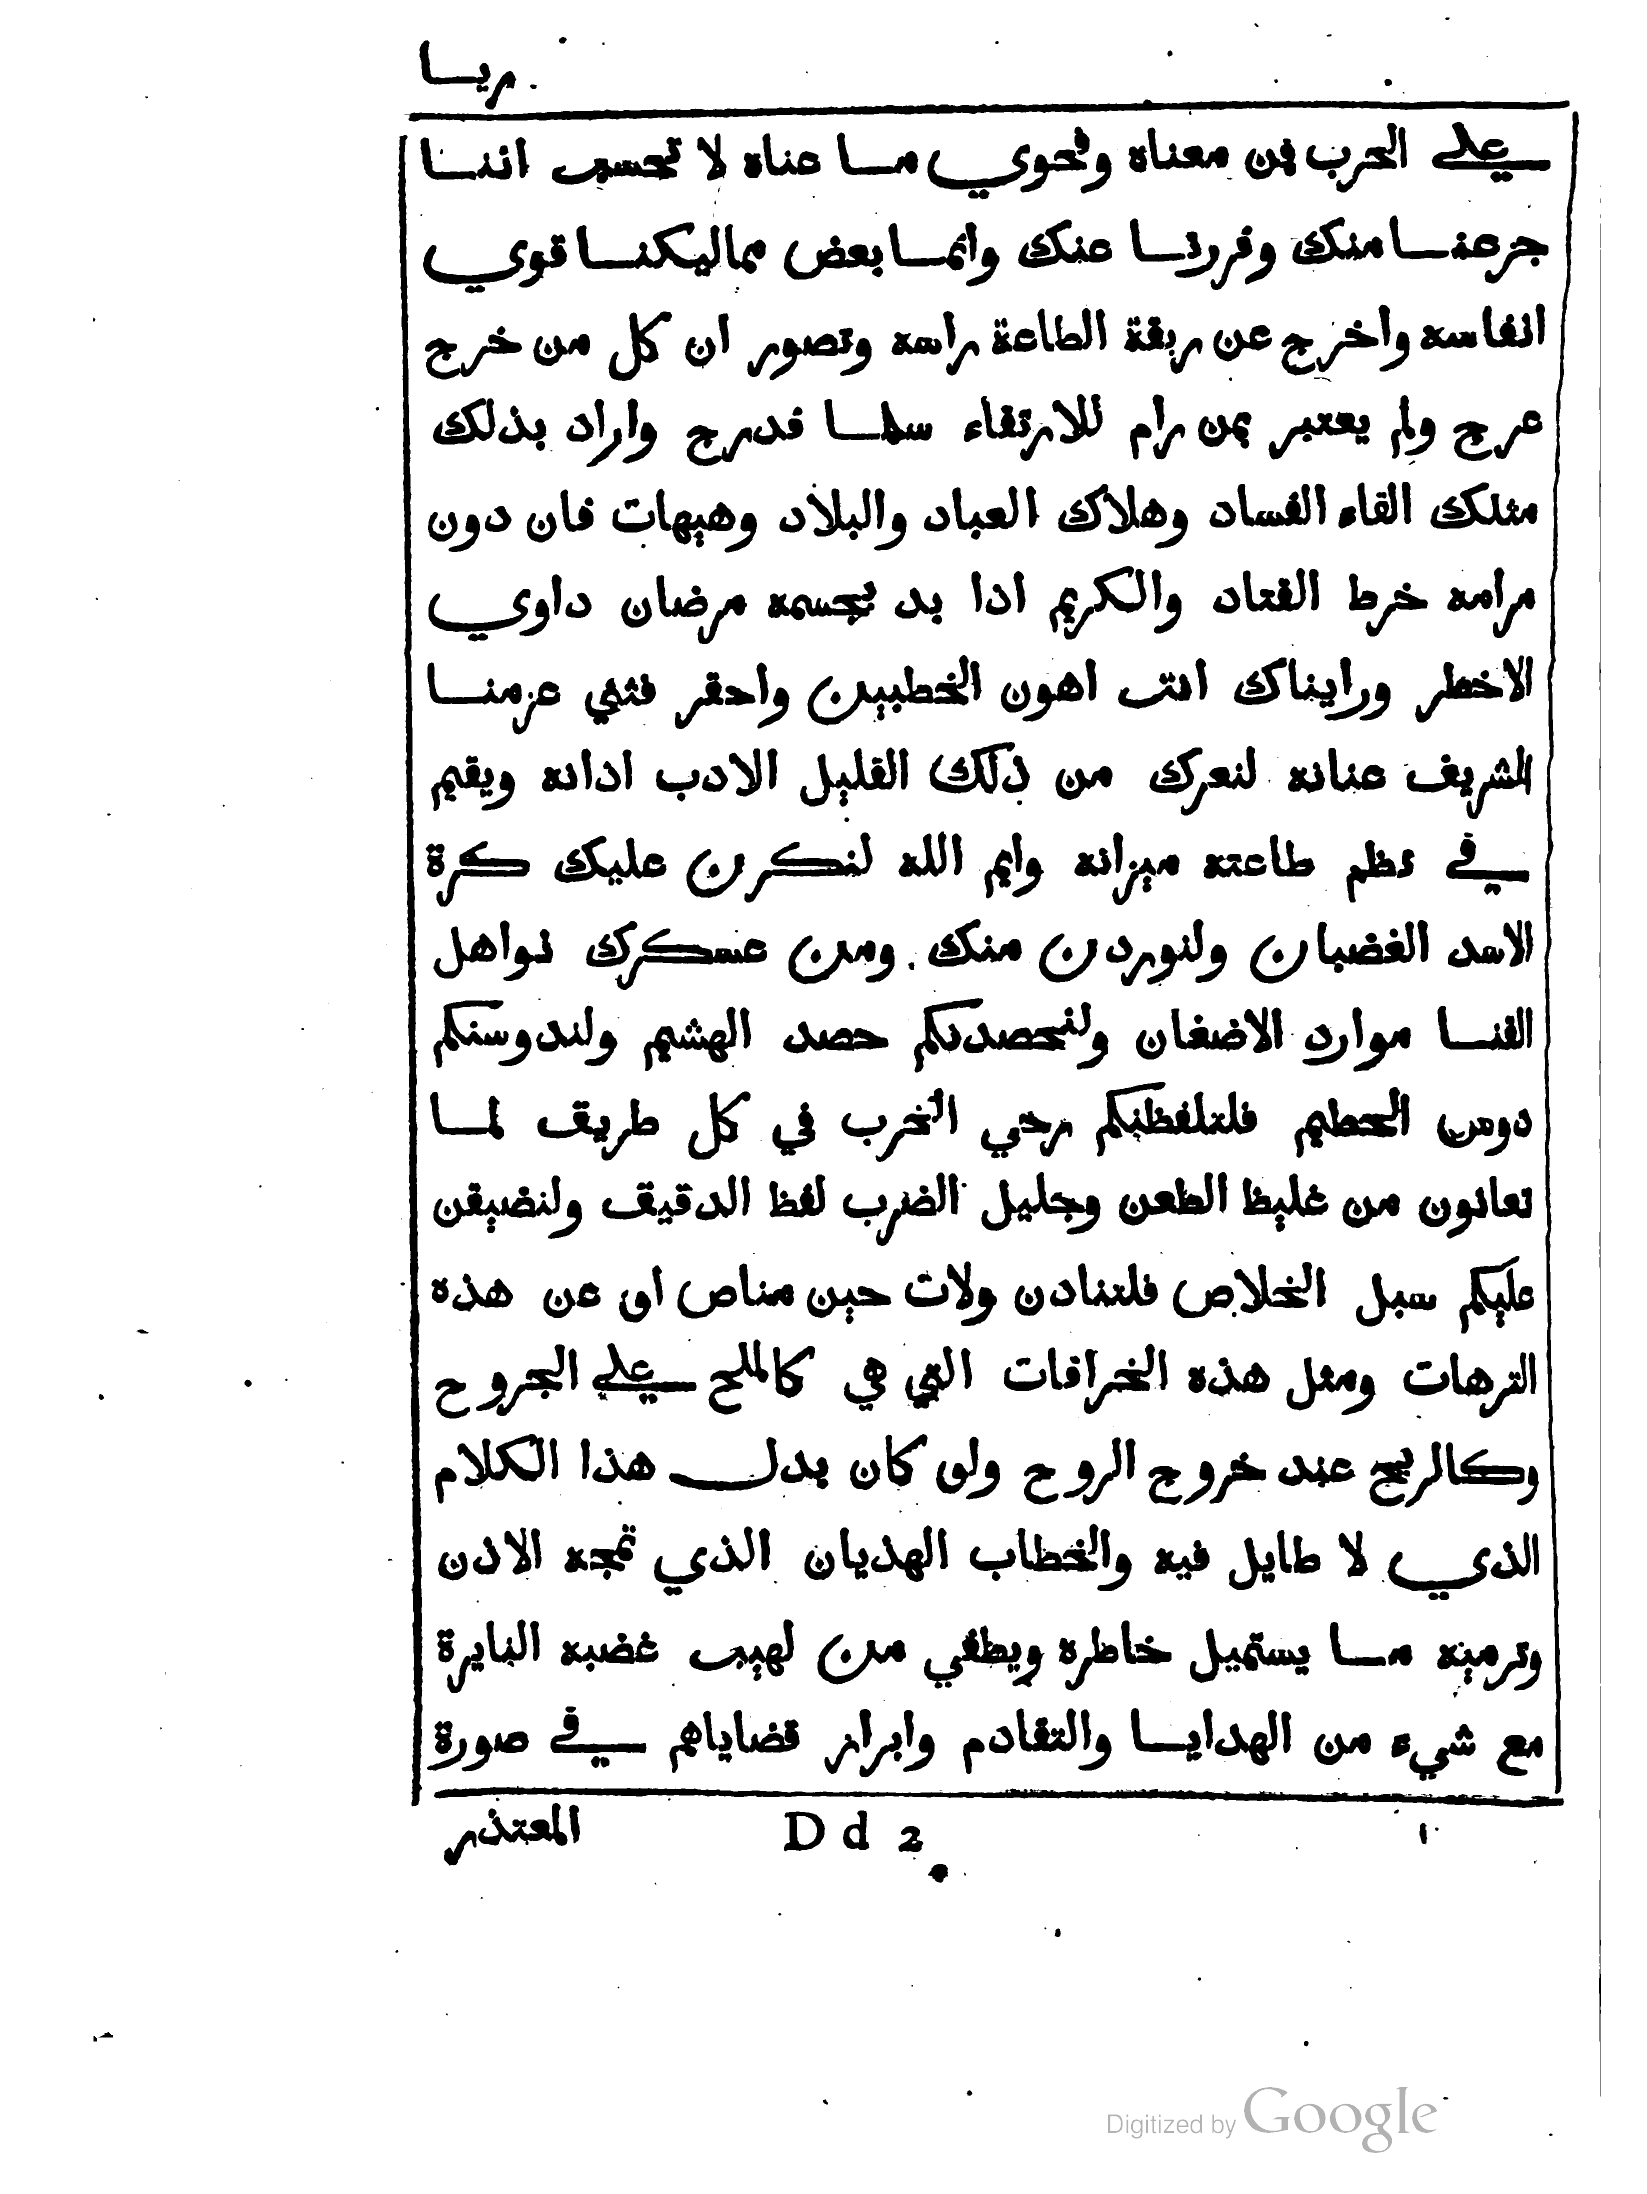 ريسا
علي الحرب فمن معناه وفحوي مسا عناه لا تحسب اننسا
جزعنسا منك وفررنسا عنك وانمسا بعض مماليكنسا قوي
انفاسه واخرج عن ربقة الطاعة راسه وتصور ان كل من خرج
عرج ولم يعتبر بمن رام للارتقاء سلمسا فدرج واراد بذلك
مثلك القاء الفساد وهلاك العباد والبلاد وهيهات فان دون
مرامه خرط القتاد والكريم اذا بد بجسمه مرضان داوي
الاخطر ورايناك انت اهون الخطبين واحقر فثني عزمنسا
الشريف عنانه لنعرك من ذلك القليل الادب اذانه ويقيم
في نظم طاعته ميزانه وايم الله لنكرن عليك كرة
الاسد الغضبان ولنوردن منك ومن عسكرك نواهل
القنسا موارد الاضغان ولنحصدنكم حصد الهشيم ولندوسنكم
دوس الحطيم فلتلفظنكم رحي الخرب في كل طريق لمسا
تعانون من غليظ الطعن وجليل الضرب لفظ الدقيق ولنضيقن
عليكم سبل الخلاص فلتنادن ولات حين مناص او عن هذه
الترهات ومثل هذه الخرافات التي هي كالملح علي الجروح
وكالريح عند خروج الروح ولو كان بدل هذا الكلام
الذي لا طايل فيه والخطاب الهذيان الذي تمجه الاذن
وترميه مسا يستميل خاطره ويطفي من لهيب غضبه النايرة
مع شيء من الهدايسا والتقادم وابراز قضاياهم في صورة
١ D d 2 المعتذر
Digitized by Google